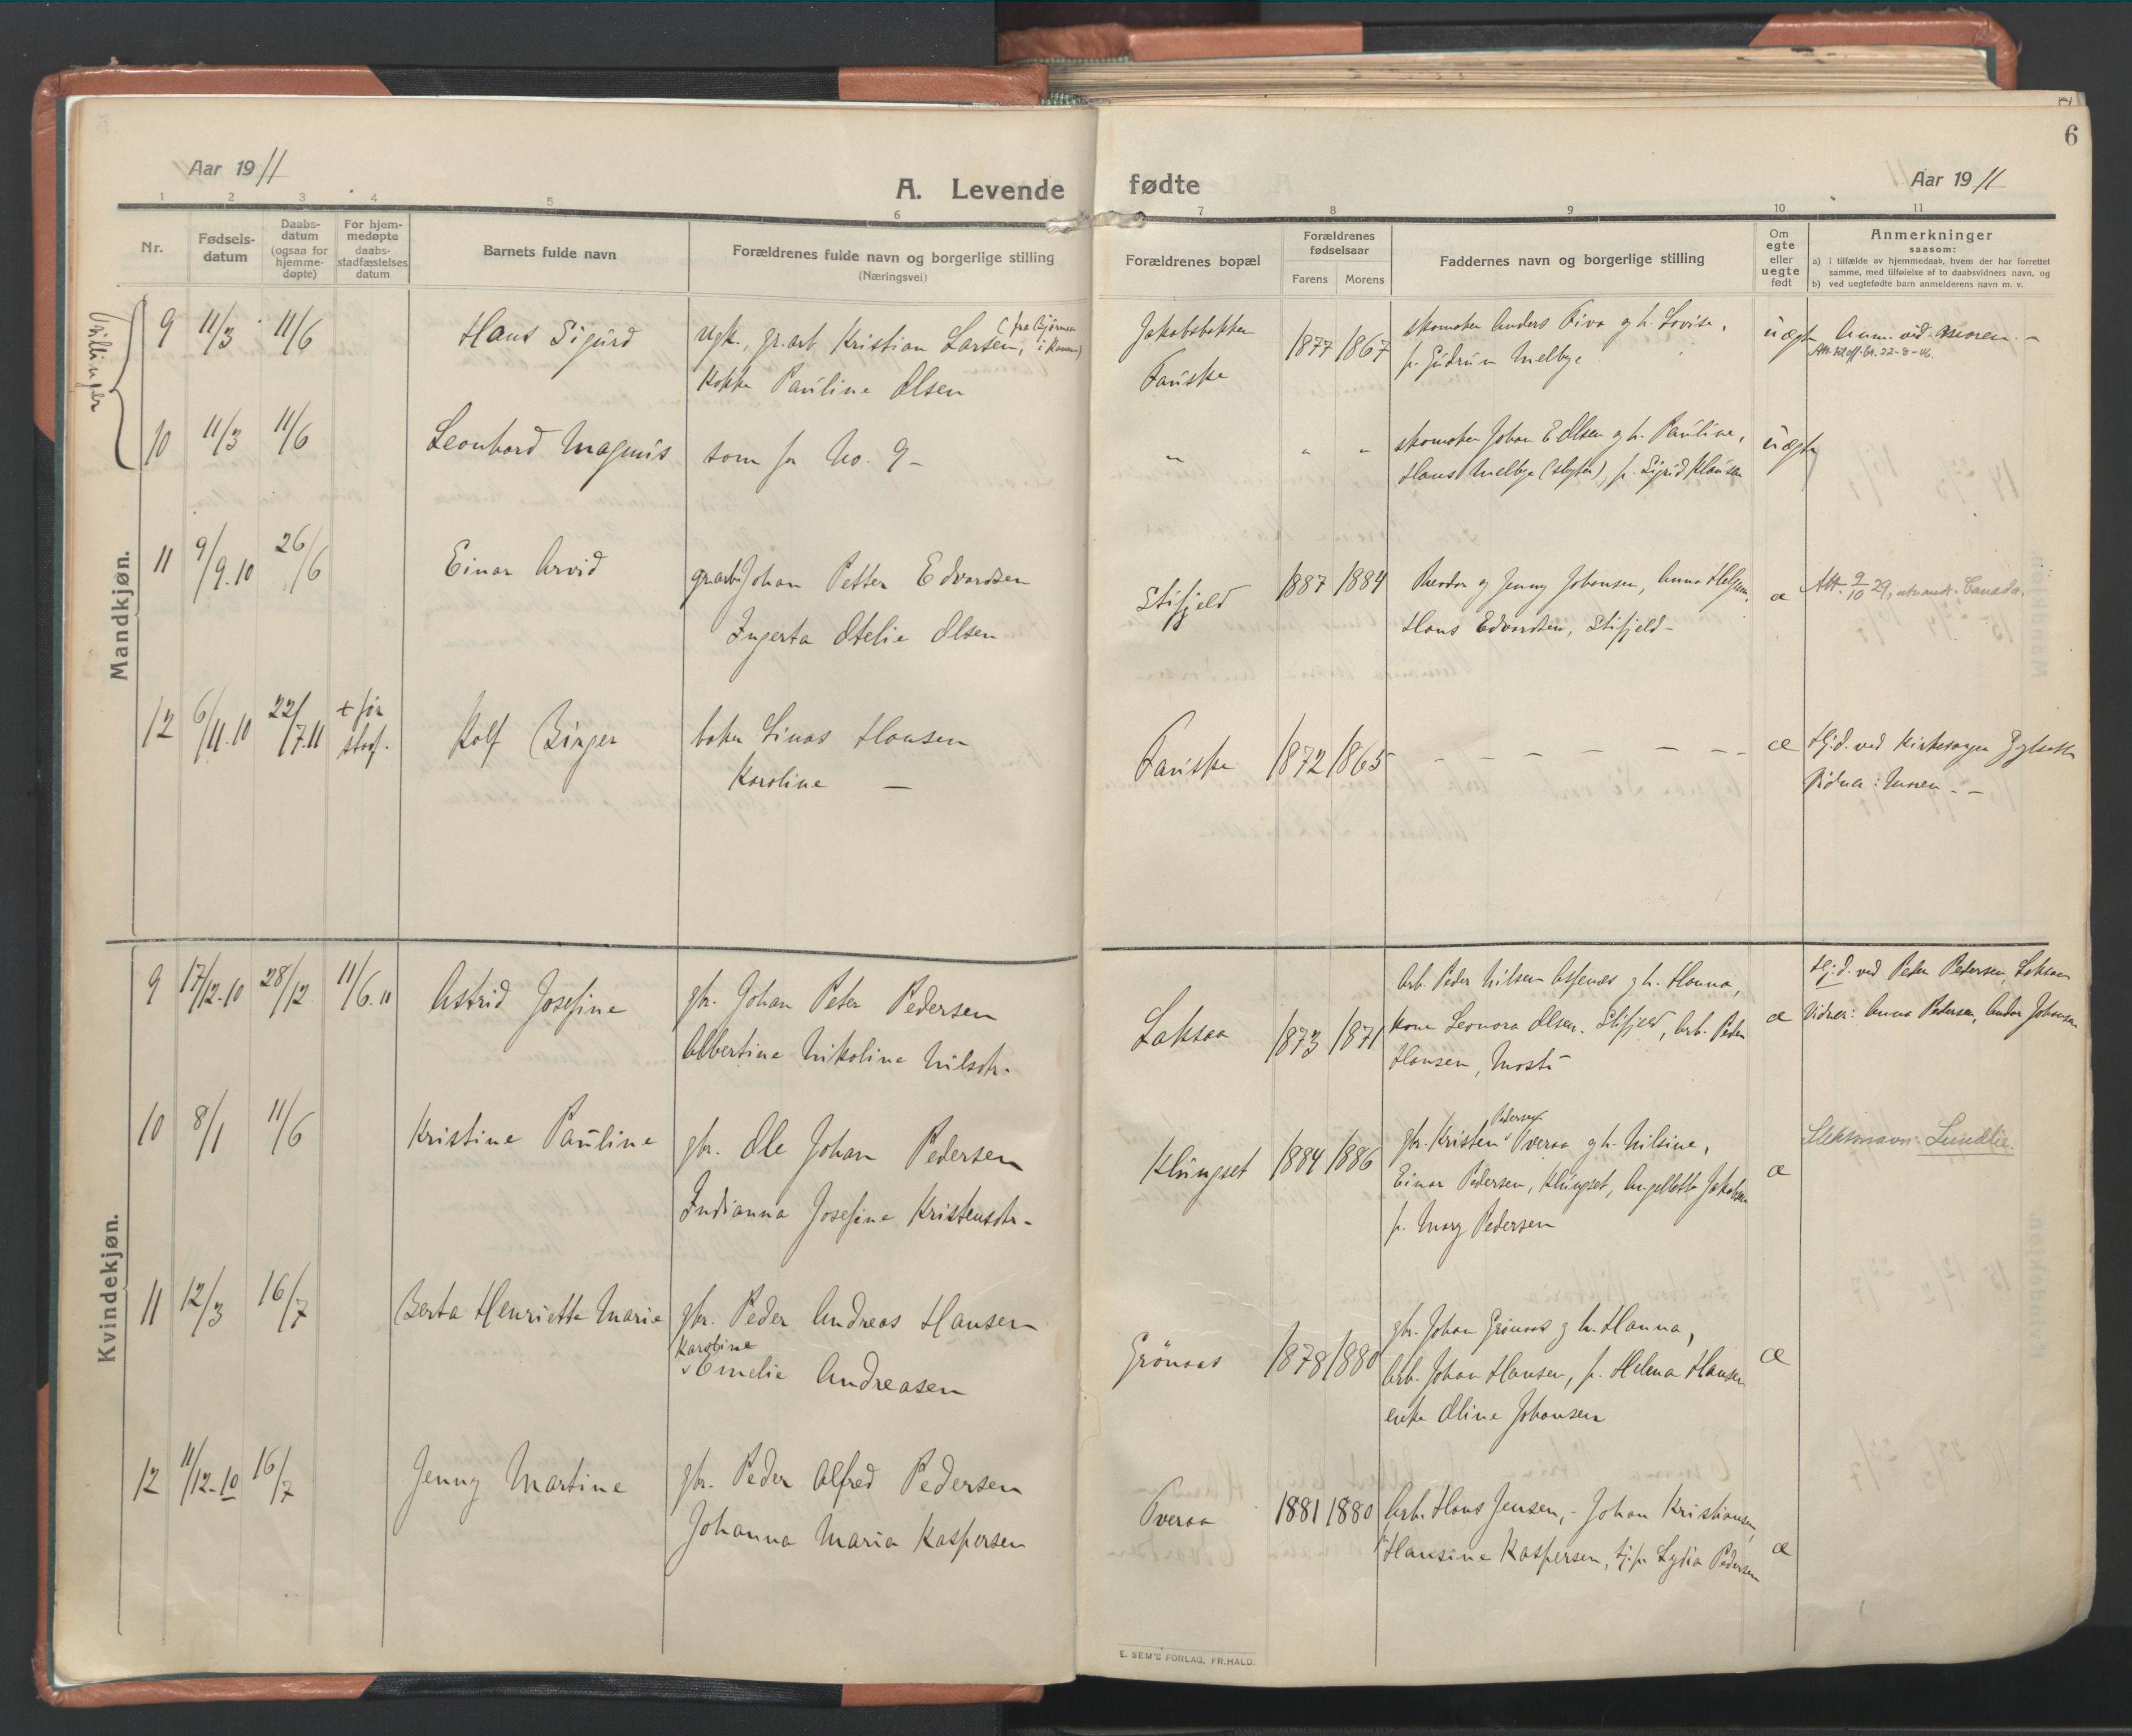 6
Aar 1911
A. Levende fødte
Aar 1911
1 2 3 4 5 6 7 8 9 10 11
Nr.
Fødsels-
datum
Daabs-
datum
(ogsaa for
hjemme-
døpte)
For hjem-
medøpte
daabs-
stadfæstelses
datum
Barnets fulde navn
Forældrenes fulde navn og borgerlige stilling
(Næringsvei)
Forældrenes bopæl
Forældrenes
fødselsaar
Farens Morens
Faddernes navn og borgerlige stilling
Om
egte
eller
uegte
født
Anmerkninger
saasom:
a) i tilfælde av hjemmedaab, hvem der har forrettet
samme, med tilføielse af to daabsvidners navn, og
b) ved uegtefødte barn anmelderens navn m. v.
Mandkjøn.
Tvillinger
9 11/3 11/6 Hans Sigurd
ugk., gr.arb Kristian Larsen,
Kokke Pauline Olsen
Jakobsbakken
Fauske
1877 1867
skomaker Anders Tiva og h. Lovise,
p. Gudrun Melbye
uægte
Anm. ved moren. -
10 11/3 11/6 Leonhard Magnus
som for No. 9 -
" " "
skomaker Johan E Olsen og h. Pauline,
Hans Melbye (slagter), p. Sigrid Klausen
uægte
11 9/9.10 26/6 Einar Arvid
gr.arb Johan Petter Edvardsen
Ingerta Otelie Olsen
Stifjeld
1887 1884
Teodor og Jenny Johansen, Anna
Hans Edvardsen, Stifjeld -
æ
Att. 9/10 29, utvandr. Canada.
12 6/11.10 22/7.11 + før
stadf.
Rolf Birger
baker Linas Hansen
Karoline —
Fauske
1872 1865
- - - - - -
æ
Hj.d. ved Kirkesanger
Vidner: Moren. -
Kvindekjøn.
9 17/12-10 28/12 11/6.11 Astrid Josefine
gbr. Johan Peter Pedersen
Albertine Nikoline Nilsdtr.
Laksaa
1873 1871
Arb. Peder Nilsen Osfenes og h. Hanna,
kone Leonora Olsen. Stifjeld, Arb. Peder
Hansen, Mosti
æ
Hj.d. ved Peder Pedersen, Laksaa
Vidner: Anna Pedersen, Andor Johansen
10 8/1 11/6 Kristine Pauline
gbr. Ole Johan Pedersen
Indianna Josefine Kristensdtr -
Klungset
1884 1886
Pedersen
gbr. Kristen Tveraa og h. Nilsine,
Einar Pedersen, Klungset, Angellette Jakobsen
p. Mary Pedersen
æ
Slektsnavn: Lundlie.
11 12/3 16/7 Berta Henriette Marie
gbr. Peder Andreas Hansen
Karoline
Emelie Andreasen
Grönaas
1878 1880
gbr. Johan Grönaas og h. Hanna,
Arb. Johan Hansen, p. Helena Hansen
enke Oline Johansen
æ
12 11/12-10 16/7 Jenny Martine
gbr. Peder Alfred Pedersen
Johanna Maria Kaspersen
Tveraa
1881 1880
Arb. Hans Jensen, - Johan Kristiansen,
Hansine Kaspersen, tj.p. Lydia Pedersen
æ
E. SEM'S FORLAG, FR.HALD.